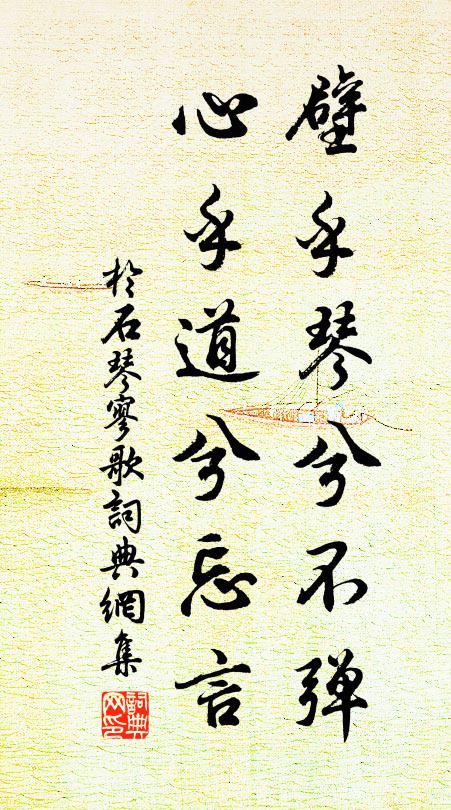 壁乎琴兮不弹
心乎道兮忘言
於石琴寥歌詞典網集
詞典网印